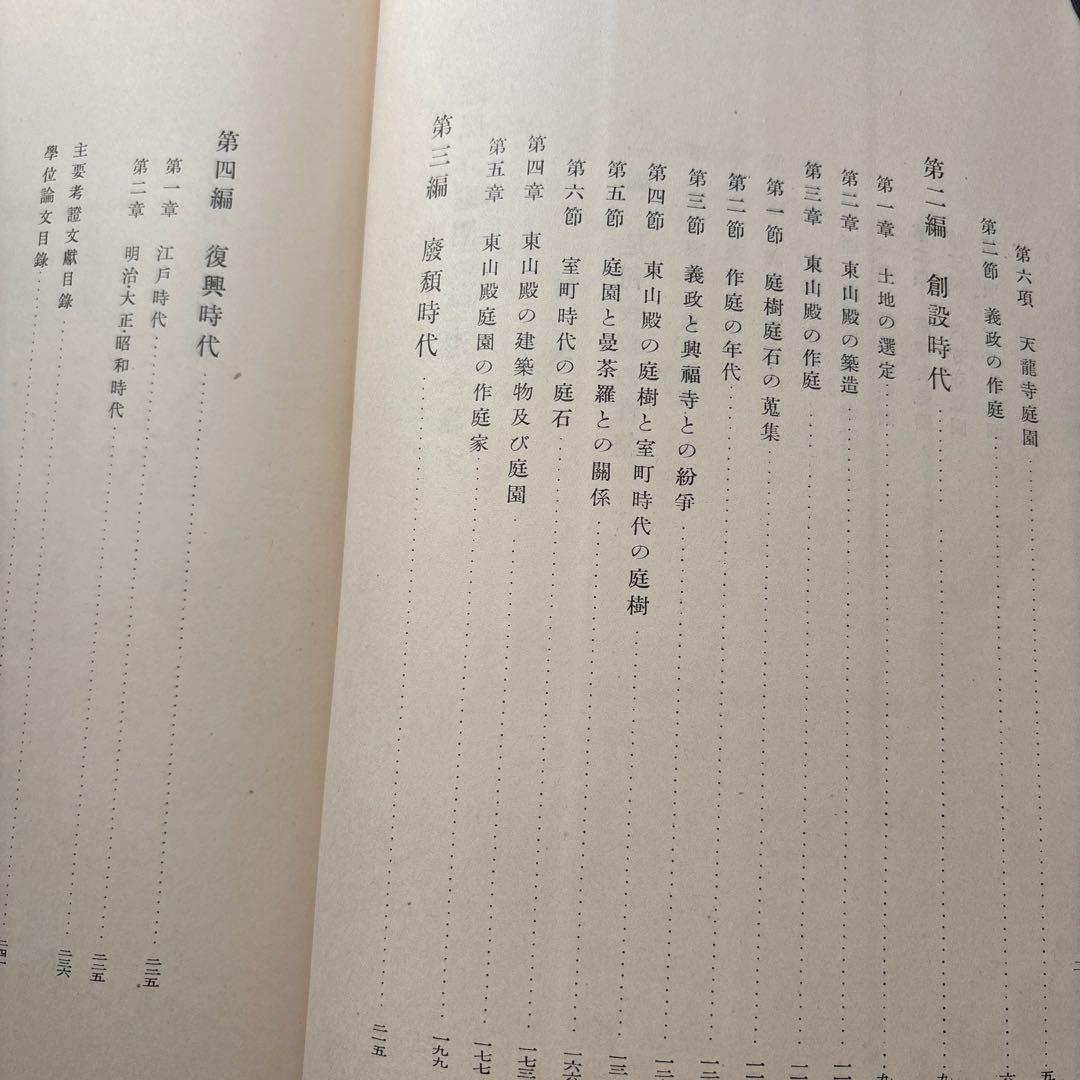 第六項 天龍寺庭園
第二節 義政の作庭
第二編 創設時代
第一章 土地の選定
第二章 東山殿の築造
第三章 東山殿の作庭
第一節 庭樹庭石の蒐集
第二節 作庭の年代
第三節 義政と興福寺との紛爭
第四節 東山殿の庭樹と室町時代の庭樹
第五節 庭園と曼荼羅との關係
第六節 室町時代の庭石
第四章 東山殿の建築物及び庭園 一七三
第五章 東山殿庭園の作庭家 一七七
第三編 廢頽時代 一九九
二一五
第四編 復興時代
第一章 江戶時代 二一五
第二章 明治大正・昭和時代 二二五
主要考證文獻目錄 二三六
學位論文目錄